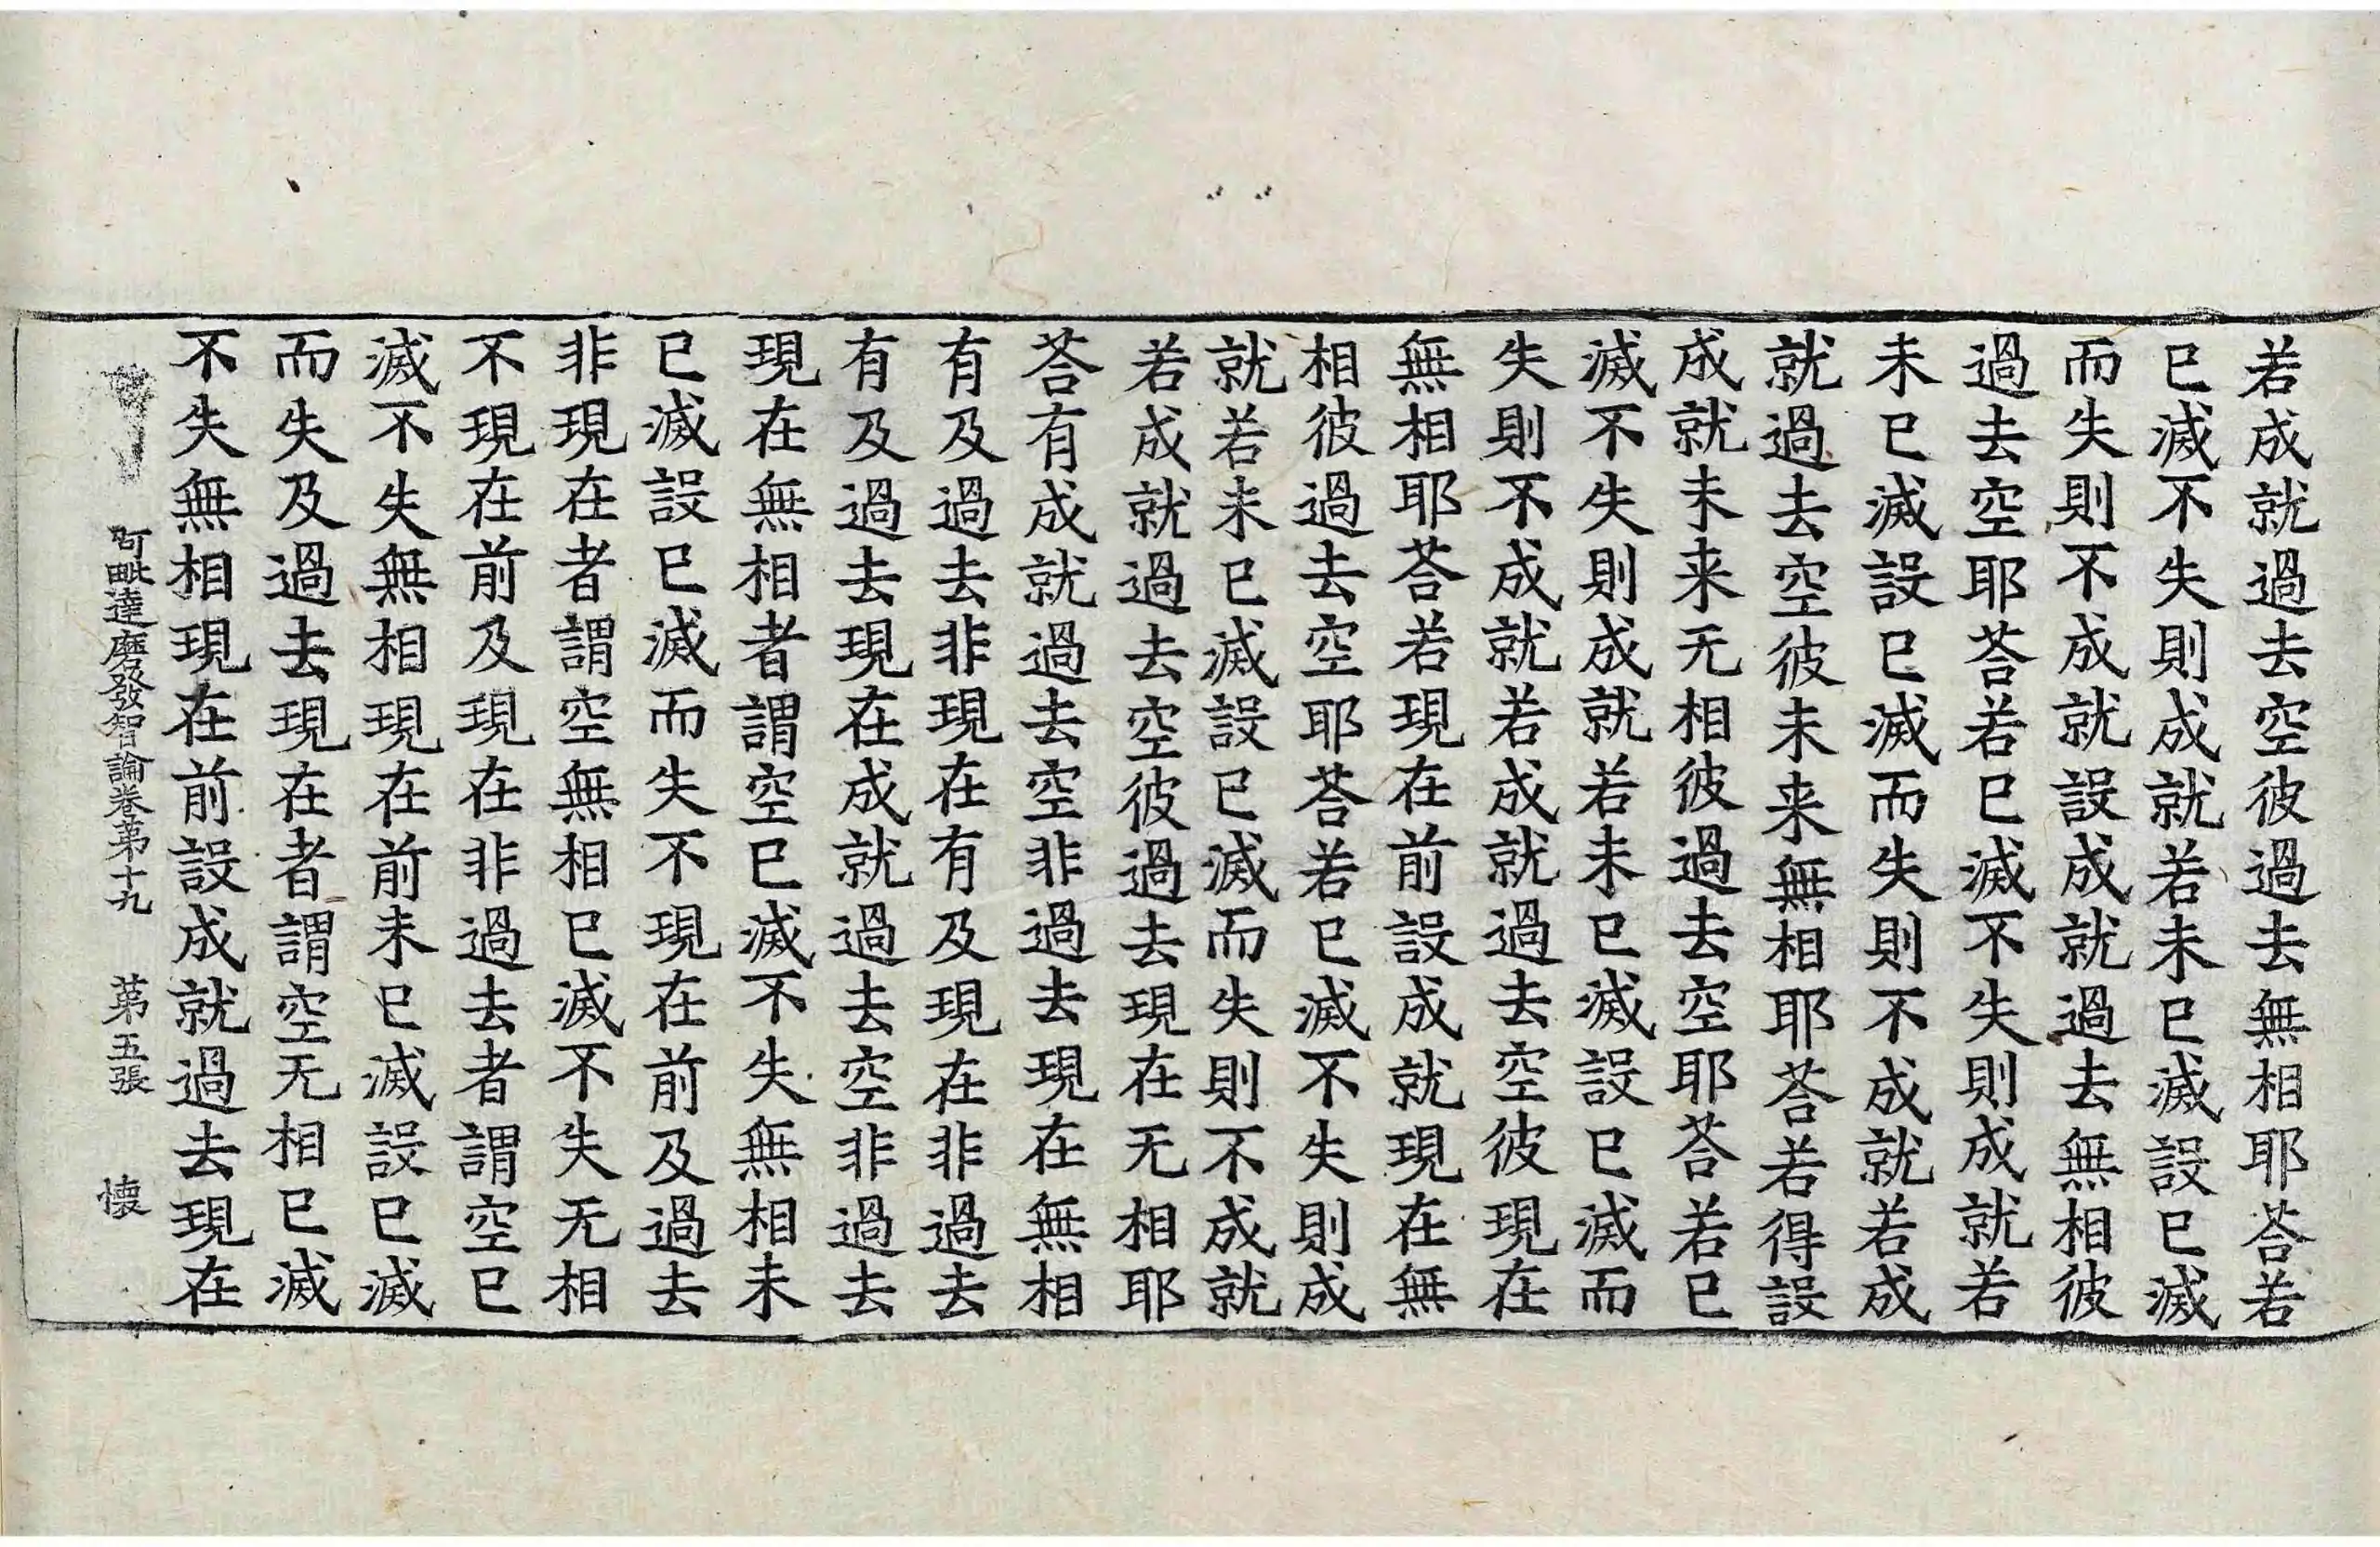 若成就過去空彼過去無相耶荅若
已滅不失則成就若未已滅設已滅
而失則不成就設成就過去無相彼
過去空耶荅若已滅不失則成就若
未已滅設已滅而失則不成就若成
就過去空彼未来無相耶荅若得設
成就未来无相彼過去空耶荅若已
滅不失則成就若未已滅設已滅而
失則不成就若成就過去空彼現在
無相耶荅若現在前設成就現在無
相彼過去空耶荅若已滅不失則成
就若未已滅設已滅而失則不成就
若成就過去空彼過去現在无相耶
荅有成就過去空非過去現在無相
有及過去非現在有及現在非過去
有及過去現在成就過去空非過去
現在無相者謂空已滅不失無相未
已滅設已滅而失不現在前及過去
非現在者謂空無相已滅不失无相
不現在前及現在非過去者謂空已
滅不失無相現在前未已滅設已滅
而失及過去現在者謂空无相已滅
不失無相現在前設成就過去現在
阿毗達磨發智論卷第十九 第五張 懐